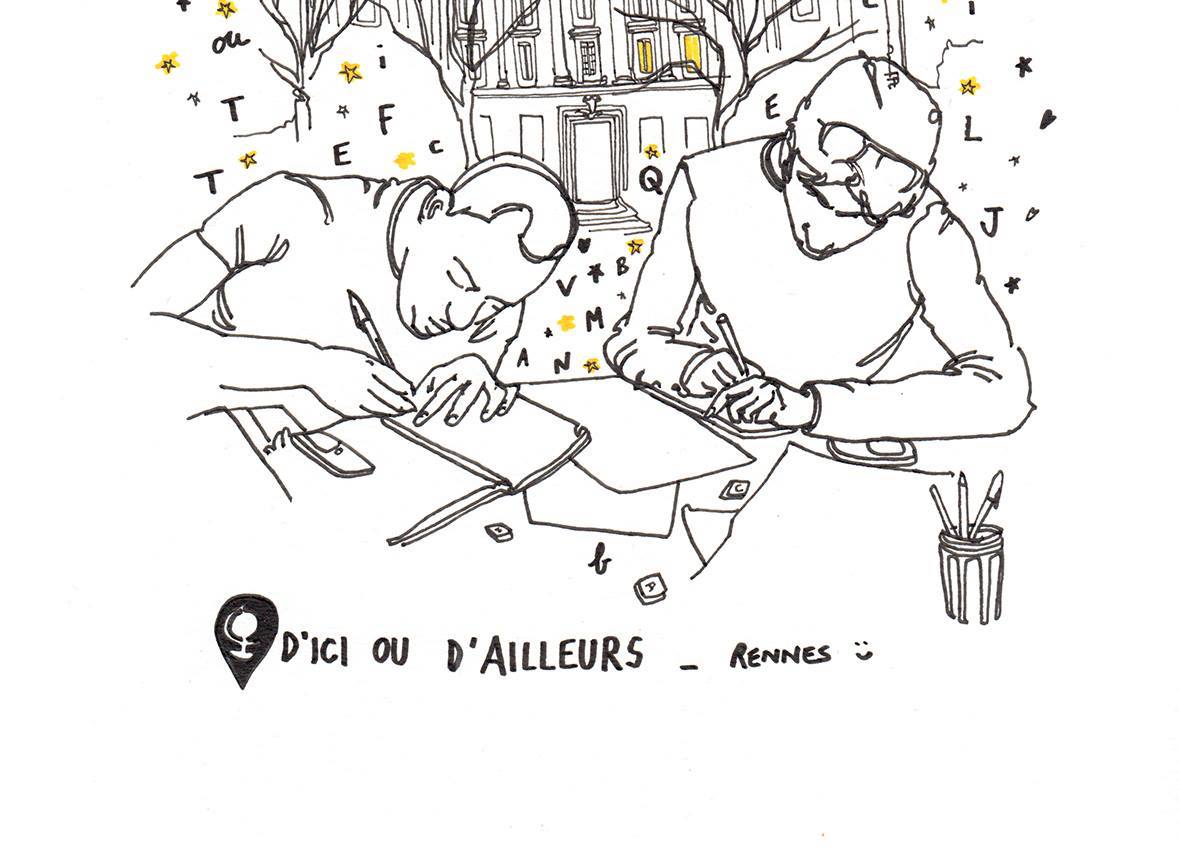 ou
i
T
F
E
C
T
E
L
Q
J
V
B
M
A
N
C
b
A
D'ICI OU D'AILLEURS _ RENNES